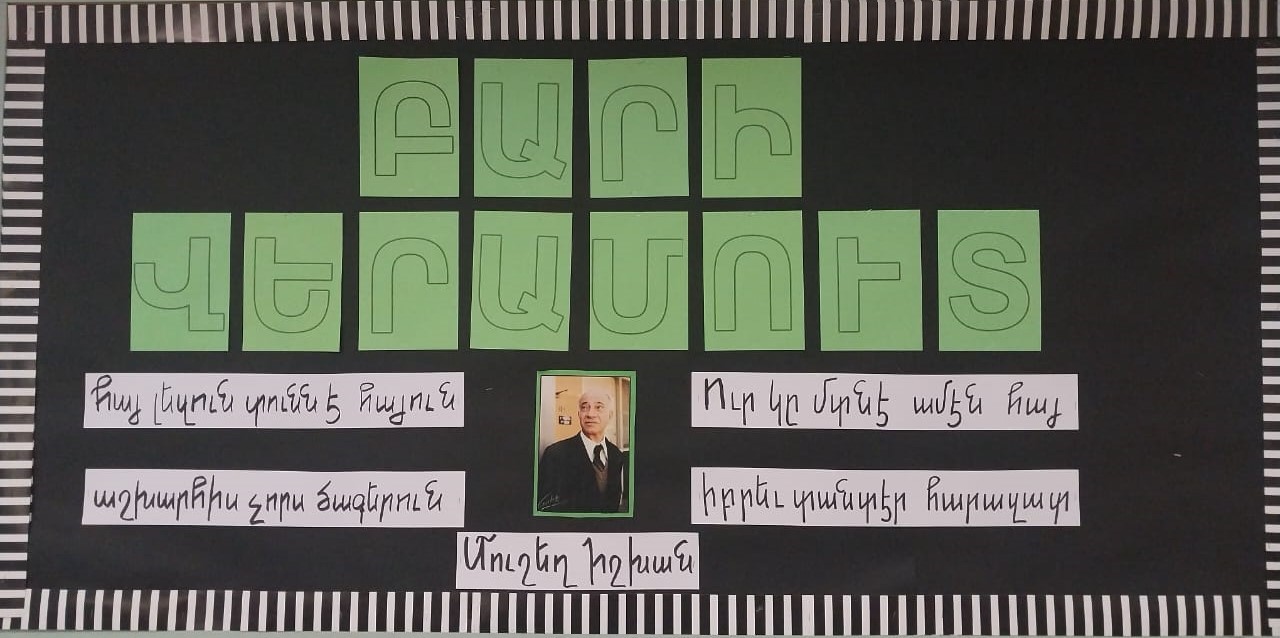 ԲԱՐԻ
ՎԵՐԱՄՈՒՏ
Հայ լեզուն տունն է հայուն
աշխարհիս չորս ծագերուն
Ուր կը մտնէ ամէն հայ
իբրեւ տանտէր հարազատ
Մուշեղ Իշխան